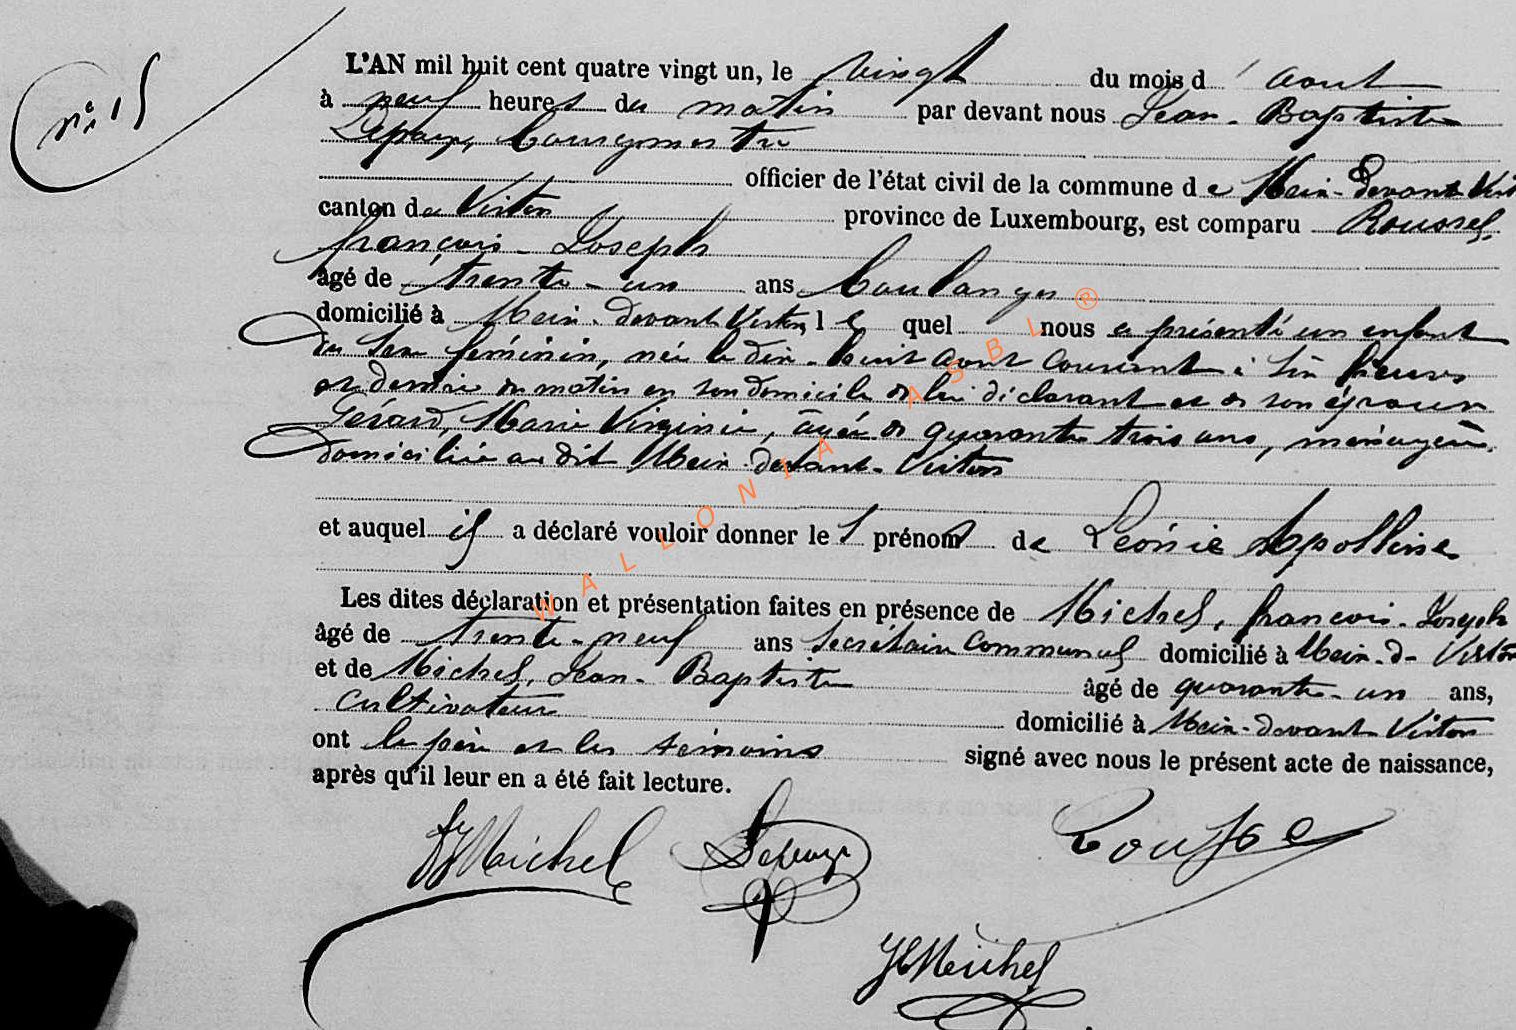 N° 15
L'AN mil huit cent quatre vingt un, le vingt du mois d' aout
à neuf heures du matin par devant nous Jean-Baptiste
Lepage, bourgmestre
officier de l'état civil de la commune de Meix-devant-Virt
canton de Virton province de Luxembourg, est comparu Roussel,
françois-Joseph
âgé de trente-un ans boulanger
domicilié à Meix-devant Virton, lequel nous a présenté un enfant
du sexe féminin, née le dix-huit aout courant à six heures
et demie du matin en son domicile de lui déclarant et de son épouse
Gérard, Marie Virginie, âgée de quarante trois ans, ménagère,
domiciliée au dit Meix-devant-Virton
et auquel il a déclaré vouloir donner les prénoms de Léonie Apolline
Les dites déclaration et présentation faites en présence de Michel, françois-Joseph
âgé de trente-neuf ans secrétaire communal domicilié à Meix-d-Virton
et de Michel, Jean-Baptiste âgé de quarante-un ans,
cultivateur domicilié à Meix-devant-Virton
ont le père et les témoins signé avec nous le présent acte de naissance,
après qu'il leur en a été fait lecture.
Michel Lepage
Michel
WALLONIA ASBL ®